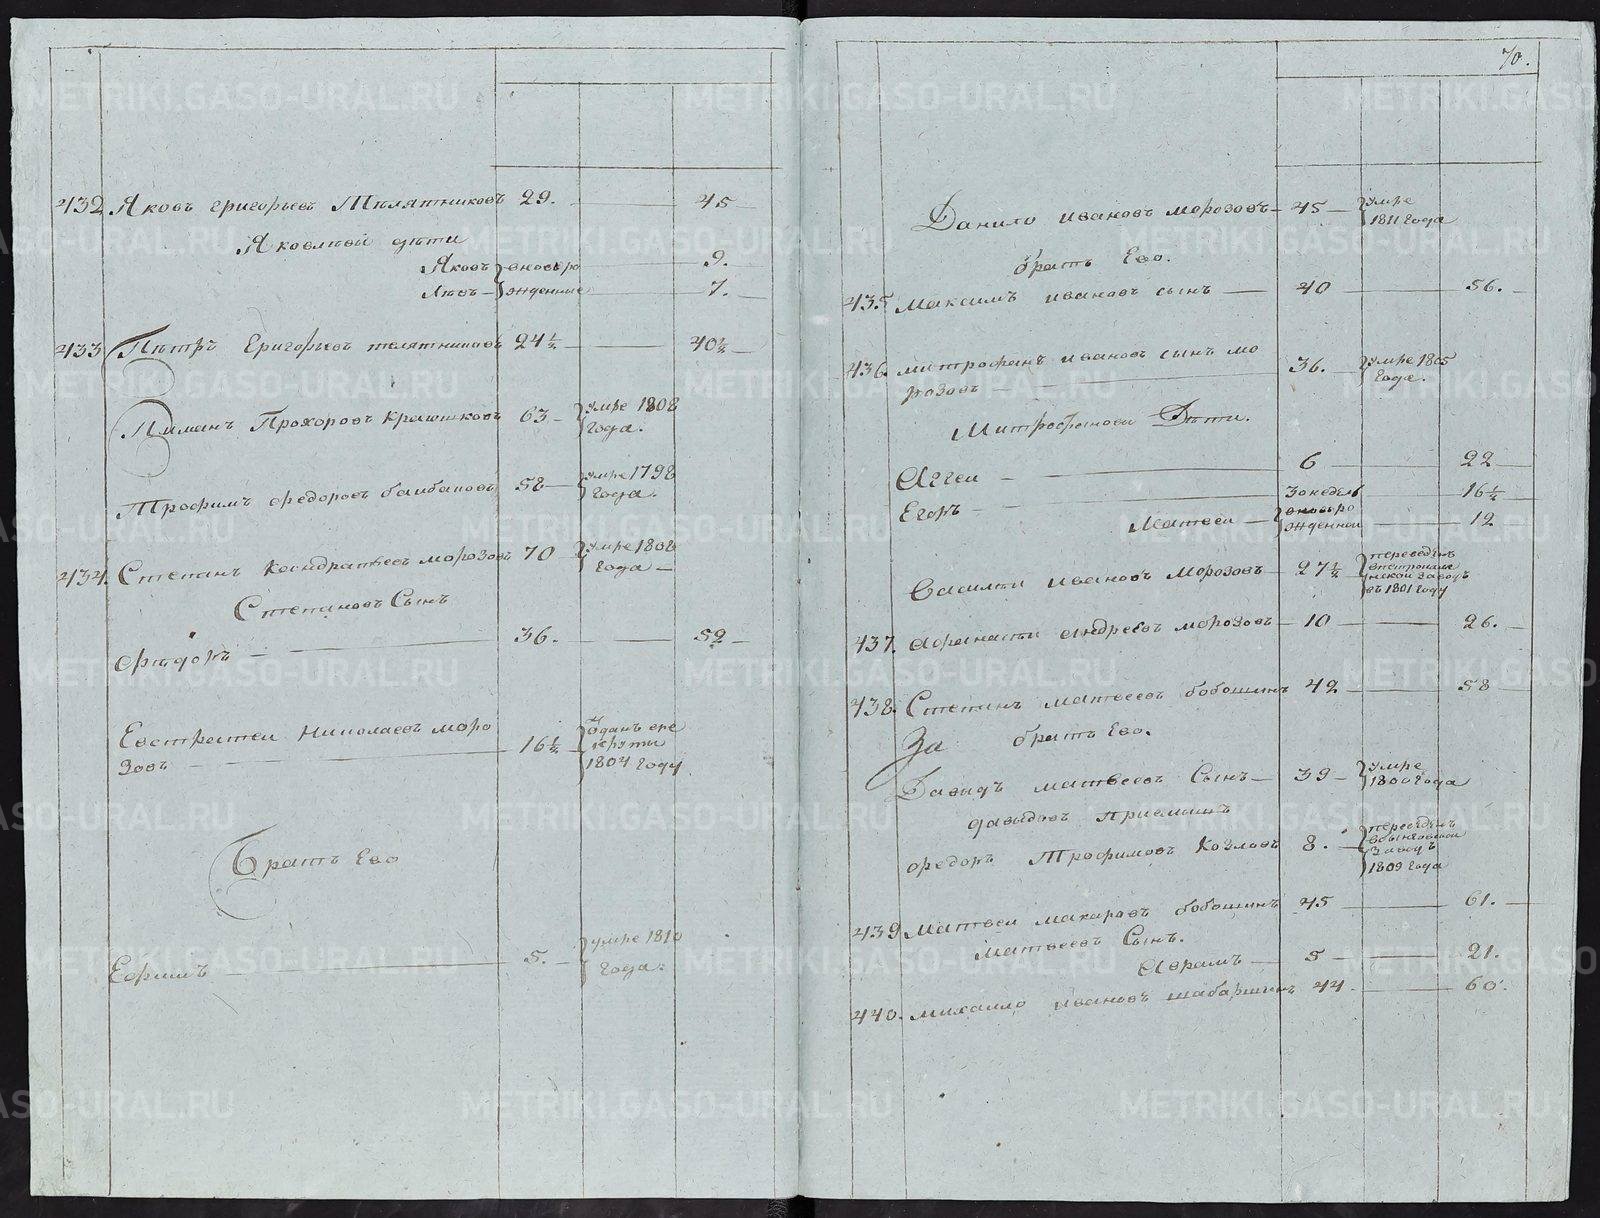 432 Яковъ григорьевъ Тѣлятниковъ 29. 45
Яковлевы дѣти
Яковъ } вновьро 9.
Левъ } жденные 7.
433 Пѣтръ Григорьевъ телятниковъ 24½ 40½
Пименъ Прохоровъ 63 умре 1808
года.
Трофимъ федоровъ балбановъ 58 умре 1798
года.
434. Степанъ Кондратьевъ морозовъ 70 умре 1808
года
Степановъ Сынъ
Фѣдоръ 36. 52
Евстратеи Николаевъ моро
зовъ 16½ Отданъ вре
круты
1804 году
Братъ Ево
Ефимъ 5. умре 1810
года.
70.
Данило ивановъ морозовъ 45 умре
1811 года
братъ Ево.
435. максимъ ивановъ сынъ 40 56.
436. митрофанъ ивановъ сынъ мо
розовъ 36. умре 1805
года.
Митрофановы Дѣти.
Аггеи 6 22
Егоръ 30 недель 16½
Матвеи вновьро
жденной 12
Василеи Ивановъ Морозовъ 27½ переведенъ
заводъ
въ 1801 году
437. Афанасеи андреевъ морозовъ 10 26.
438. Степанъ матвеевъ бобошинъ 42 58
За братъ Ево.
Давидъ матвеевъ Сынъ 39 умре
1800 года
давыдовъ приемышъ
федоръ Трофимовъ Козловъ 8. переведенъ
заводъ
1809 года
439 Матвеи макаровъ бобошинъ 45 61.
матвеевъ Сынъ.
Аврамъ 5 21.
440. михаило ивановъ шабаршинъ 44. 60.
METRIKI.GASO-URAL.RU